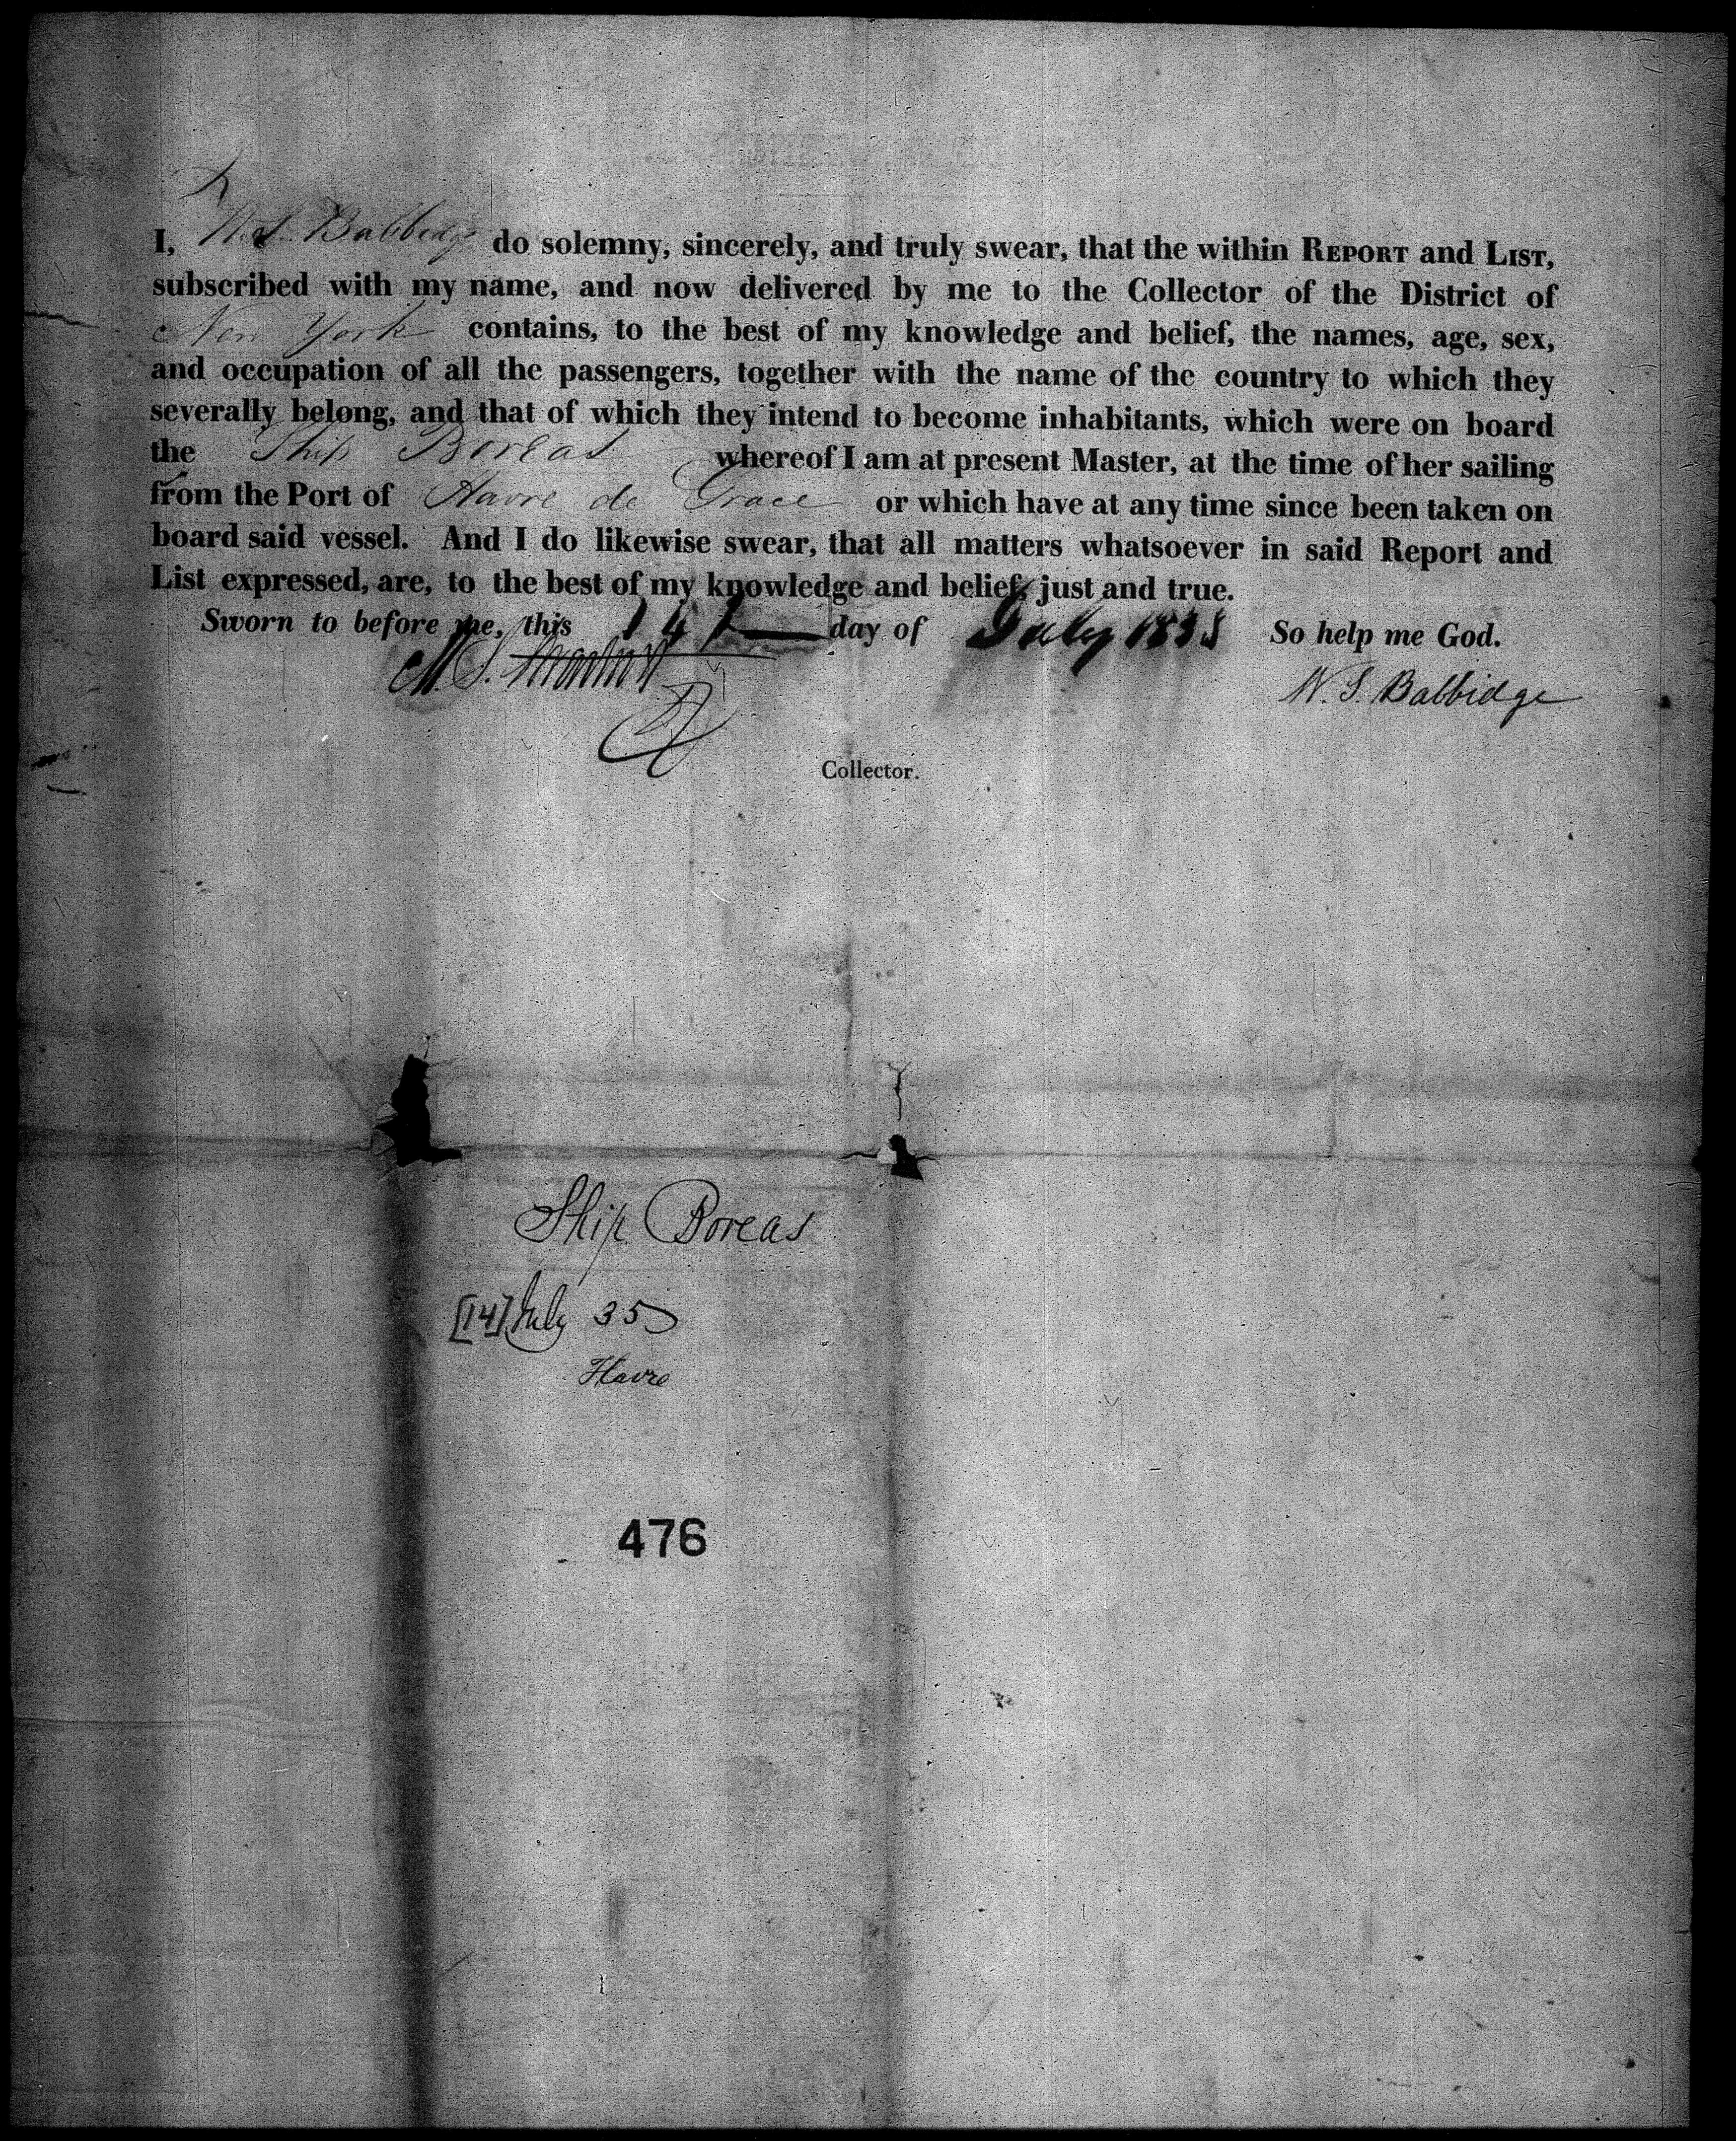 I, N. S. Babbidge do solemny, sincerely, and truly swear, that the within REPORT and LIST,
subscribed with my name, and now delivered by me to the Collector of the District of
New York contains, to the best of my knowledge and belief, the names, age, sex,
and occupation of all the passengers, together with the name of the country to which they
severally belong, and that of which they intend to become inhabitants, which were on board
the Ship Boreas whereof I am at present Master, at the time of her sailing
from the Port of Havre de Grace or which have at any time since been taken on
board said vessel. And I do likewise swear, that all matters whatsoever in said Report and
List expressed, are, to the best of my knowledge and belief, just and true.
Sworn to before me, this 14 day of July 1835 So help me God.
N. S. Babbidge
Collector.
Ship Boreas
[14] July 35
Havre
476